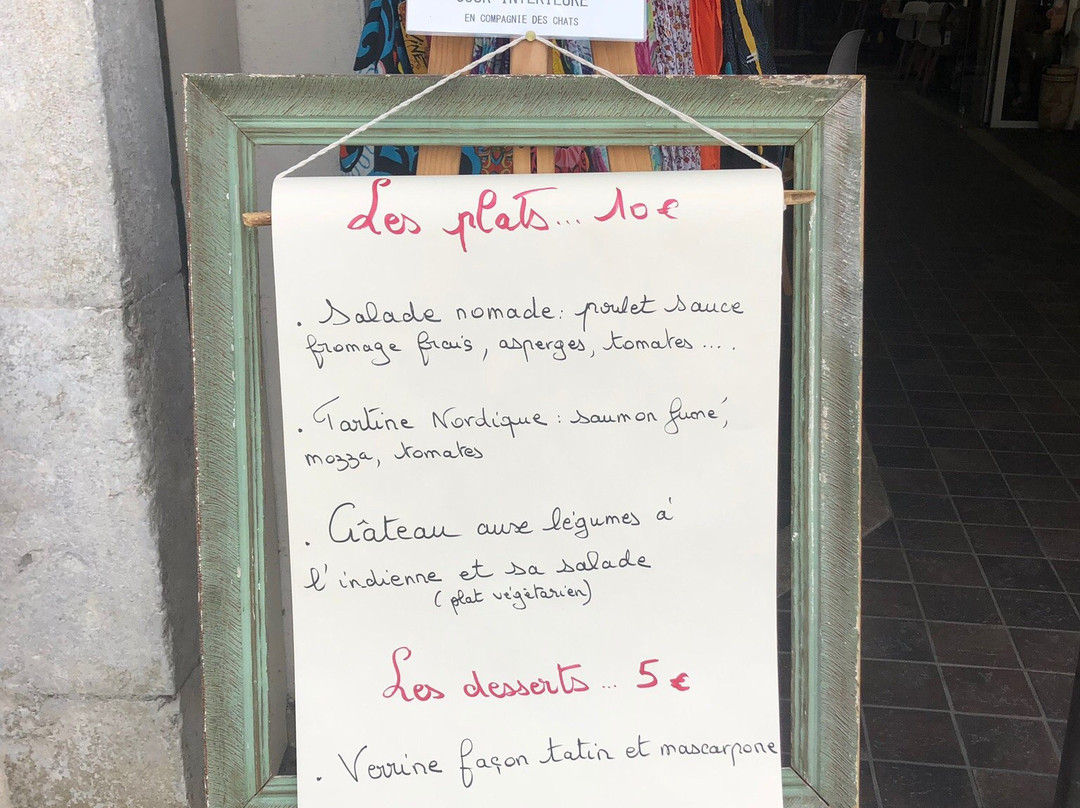 COUR INTERIEURE
EN COMPAGNIE DES CHATS
Les plats... 10€
. Salade nomade: poulet sauce
fromage frais, asperges, tomates ... .
. Tartine Nordique : saumon fumé,
mozza, tomates
. Gâteau aux légumes à
l'indienne et sa salade
(plat végétarien)
Les desserts... 5 €
. Verrine façon tatin et mascarpone